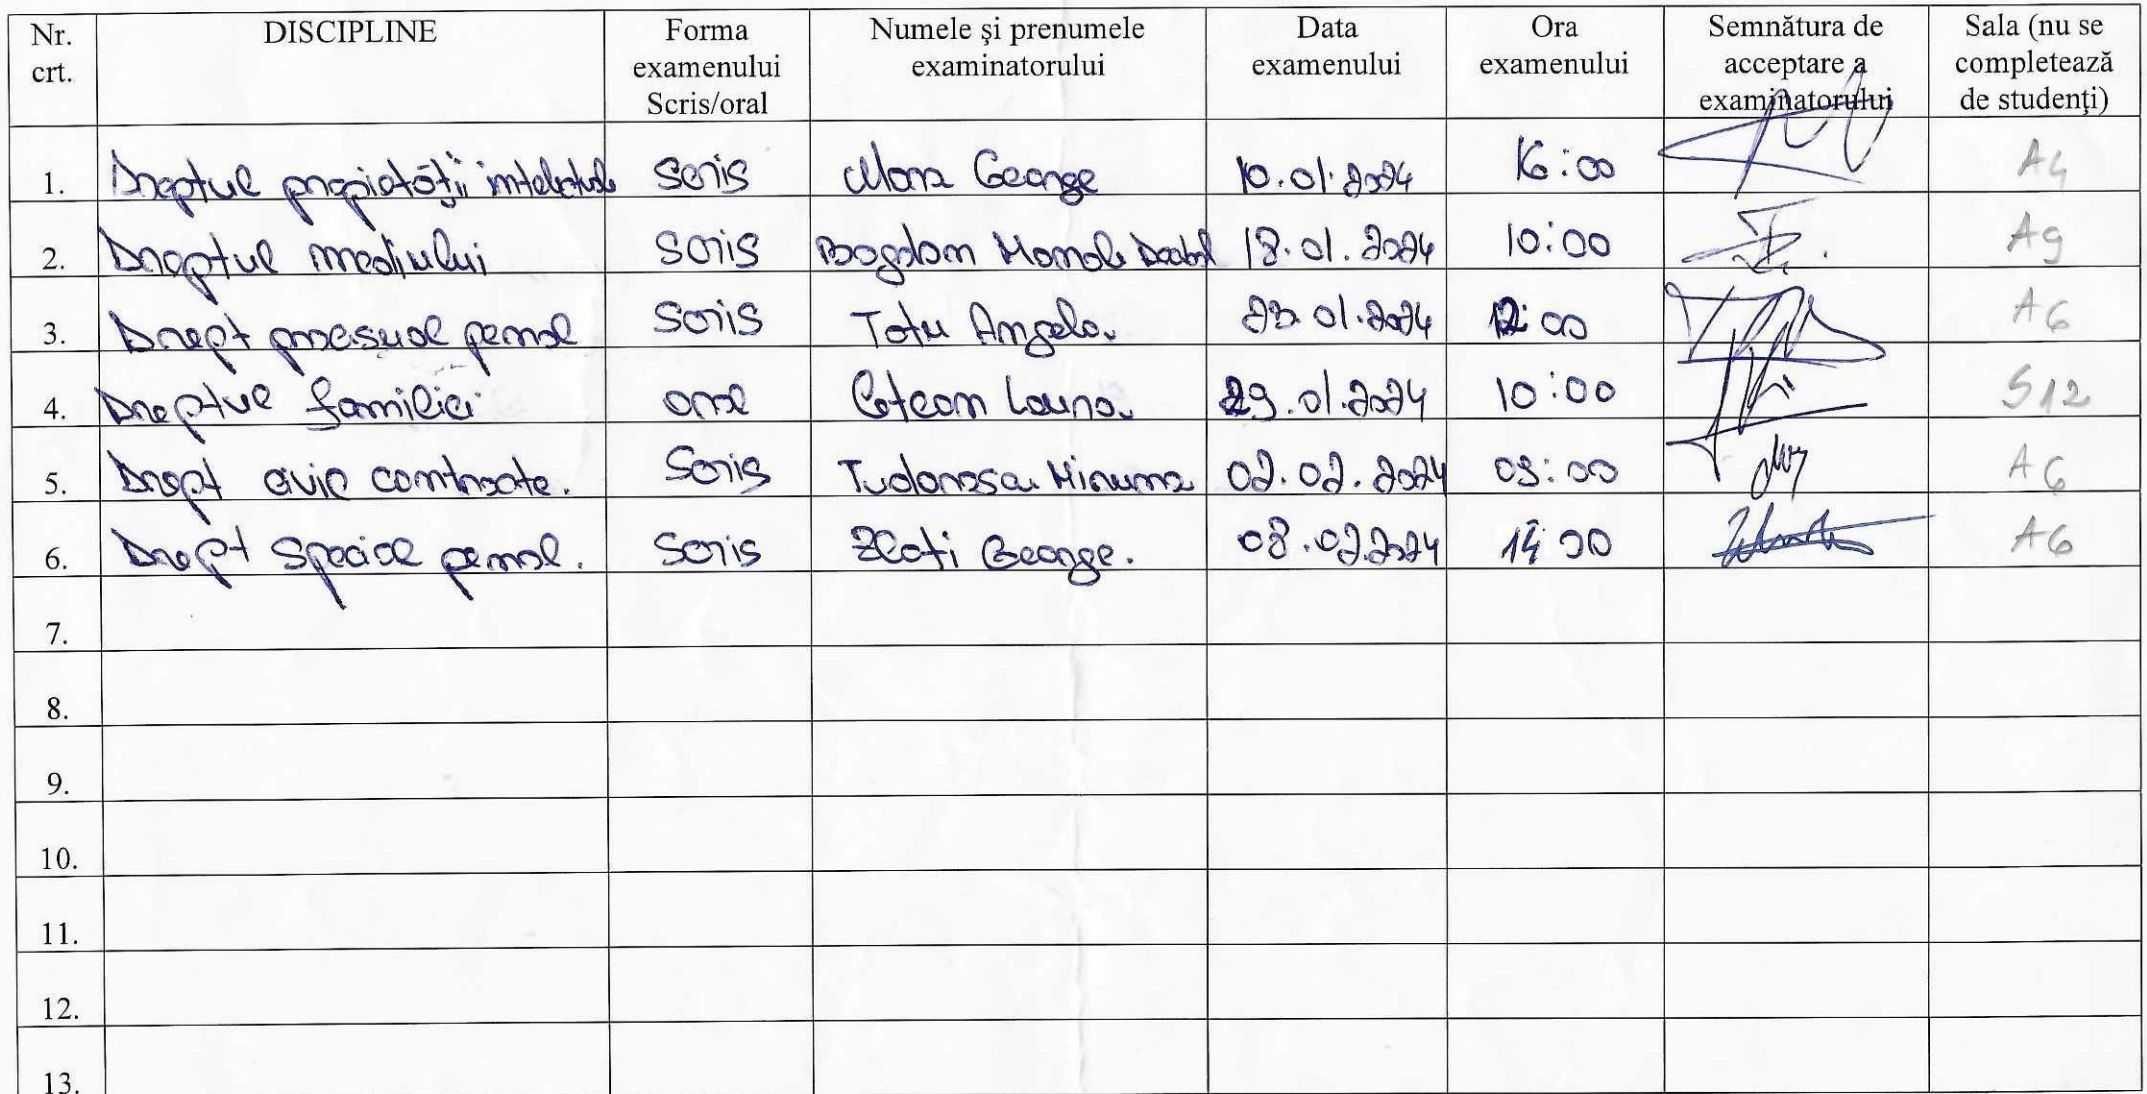 Nr. crt. DISCIPLINE Forma examenului Scris/oral Numele și prenumele examinatorului Data examenului Ora examenului Semnătura de acceptare a examinatorului Sala (nu se completează de studenți)
1. Dreptul propietății intelectuale scris Mara George 10.01.2024 16:00 A4
2. Dreptul mediului scris Bogdan 18.01.2024 10:00 A9
3. Drept procesual penal scris Totu Angela 23.01.2024 12:00 A6
4. Dreptul familiei oral Cotean 29.01.2024 10:00 S12
5. Drept civil contracte. Scris 02.02.2024 09:00 A6
6. Drept special penal. scris Zlati George. 08.02.2024 14 00 A6
7.
8.
9.
10.
11.
12.
13.